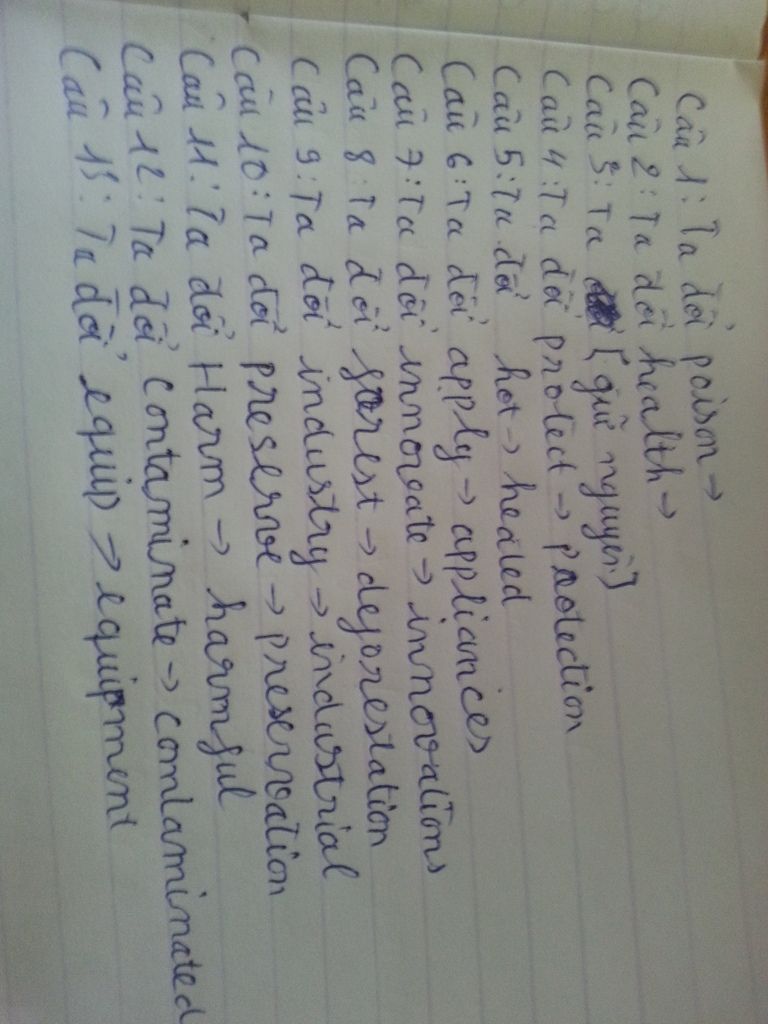 Câu 1: Ta đổi poison →
Câu 2: Ta đổi health →
Câu 3: Ta [giữ nguyên]
Câu 4: Ta đổi protect → protection
Câu 5: Ta đổi hot → heated
Câu 6: Ta đổi apply → appliances
Câu 7: Ta đổi innovate → innovations
Câu 8: Ta đổi forest → deforestation
Câu 9: Ta đổi industry → industrial
Câu 10: Ta đổi preserve → preservation
Câu 11: Ta đổi Harm → harmful
Câu 12: Ta đổi contaminate → comtaminated
Câu 13: Ta đổi equip → equipment